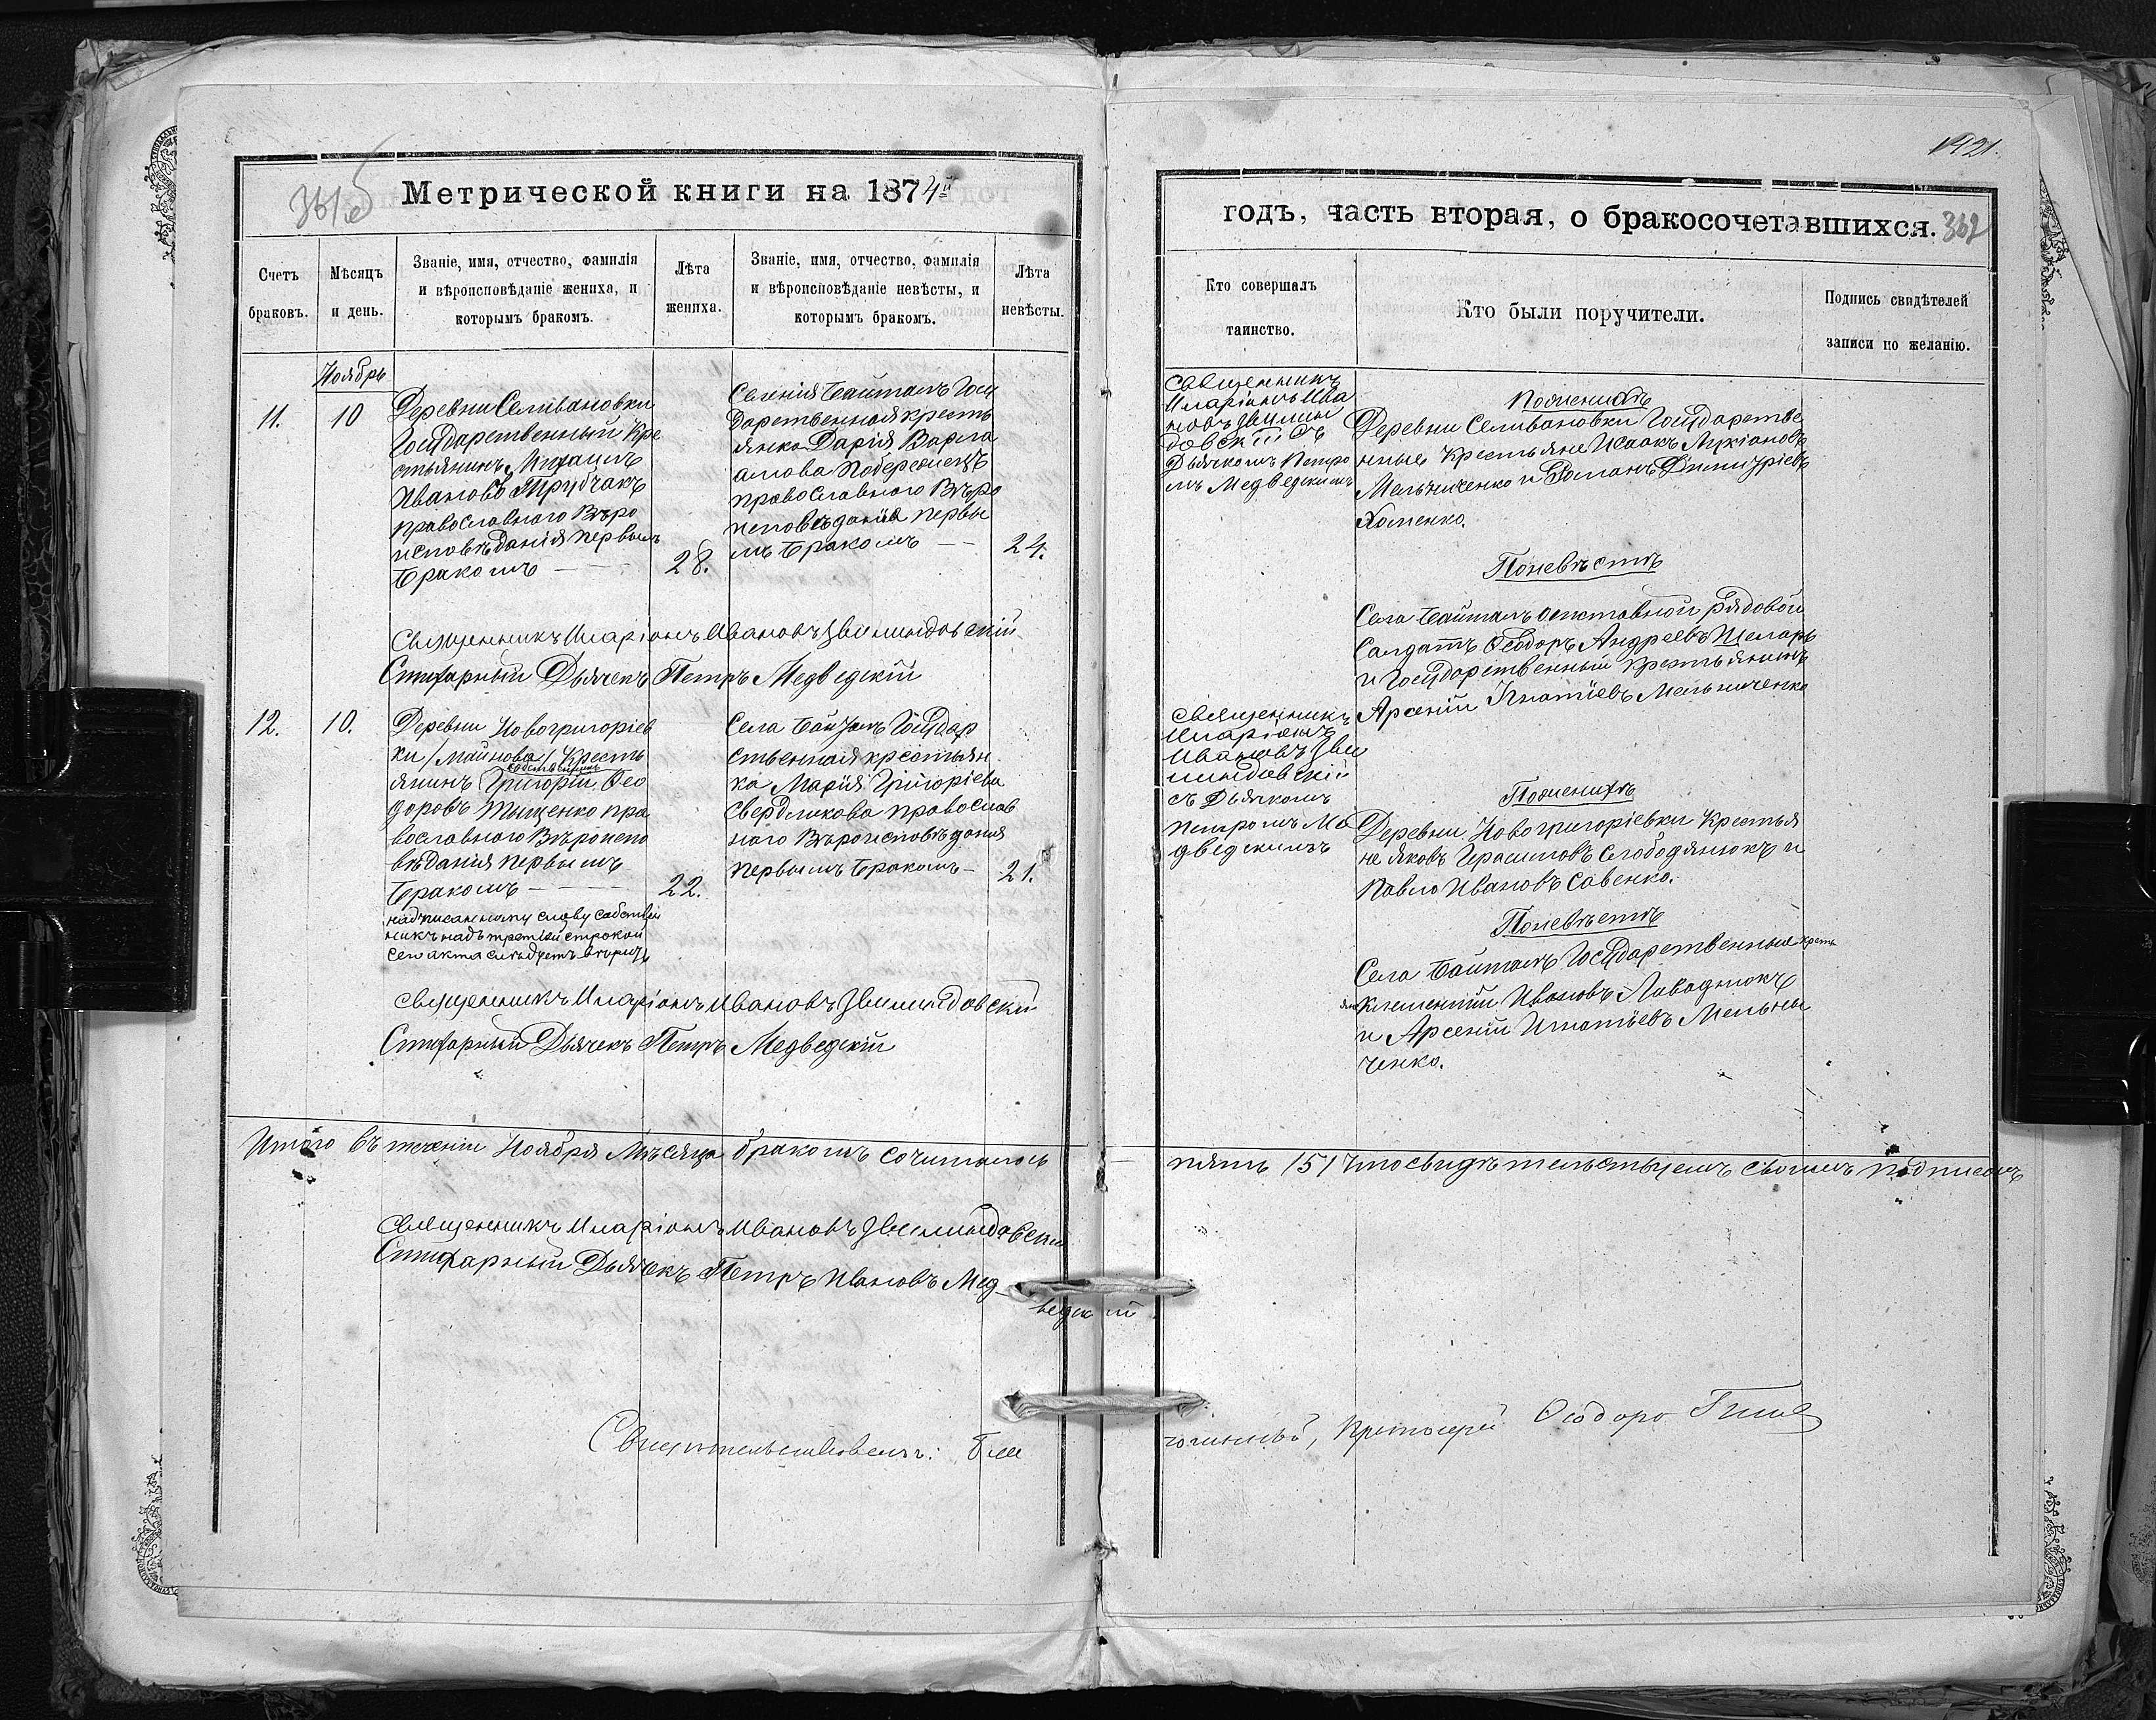 361об
Метрической книги на 1874й
Счетъ браковъ.
Мѣсяцъ и день.
Званіе, имя, отчество, фамилія
и вѣроисповѣданіе жениха, и
которымъ бракомъ.
Лѣта жениха.
Званіе, имя, отчество, фамилія
и вѣроисповѣданіе невѣсты, и
которымъ бракомъ.
Лѣта невѣсты.
Ноябрь
11.
10
Деревни Селивановки
Государственный Кре
стьянинъ Михаилъ
Ивановъ Трубчакъ
православного Вѣро
исповѣданія первымъ
бракомъ
28.
Селенія Байталъ Госу
дарственная кресть
янка Дарія Варла
амова Побережецъ
православного Вѣро
исповѣданія первы
мъ бракомъ
24.
Священникъ Иларіонъ Ивановъ
Стихарный Дьячекъ Петръ Медведскій
12.
10.
Деревни Новогригоріев
ки /Майнова/ Кресть
собственникъ
янинъ Григорій Ѳео
доровъ Тищенко пра
вославного Вѣроиспо
вѣданія первымъ
бракомъ
22.
надписанному слову собствен
никъ надъ третьей строкой
сего акта слѣдуетъ вѣрить
Села Байталъ Государ
ственная крестьян
ка Марія Григоріева
Свердликова православ
ного Вѣроисповѣданія
первымъ бракомъ
21.
Священникъ Иларіонъ Ивановъ
Стихарный Дьячекъ Петръ Медведскій
Итого въ теченіи Ноября Мѣсяца бракомъ сочиталось
Священникъ Иларіонъ Ивановъ
Стихарный Дьячекъ Петръ Ивановъ Мед
ведскій
Свидѣтельствовалъ: Бла
421.
годъ, часть вторая, о бракосочетавшихся.
362
Кто совершалъ
таинство.
Кто были поручители.
Подпись свидѣтелей
записи по желанію.
Священникъ
Иларіонъ Ива
новъ
Съ
Дьячкомъ Петро
мъ Медведскимъ
По женихѣ
Деревни Селивановки Государстве
нные Крестьяне Исаакъ Лукіановъ
Мельниченко и Романъ Димитріевъ
Хоменко.
По невѣстѣ
Села Байталъ отставной рядовой
Солдатъ Ѳеодоръ Андреевъ
и Государственный Крестьянинъ
Арсеній Игнатіевъ Мельниченко
Священникъ
Иларіонъ
Ивановъ
съ Дьячкомъ
Петромъ Ме
дведскимъ
По женихѣ
Деревни Новогригоріевки Крестья
не Яковъ Герасимовъ Слободянюкъ и
Павло Ивановъ Савенко.
По невѣстѣ
Села Байталъ Государственные кресть
яне Климентій Ивановъ
и Арсеній Игнатіевъ Мельни
ченко.
пять /5/ что свидѣтельствуемъ своимъ подписомъ
гочинный, Протоіерей Ѳеодоръ